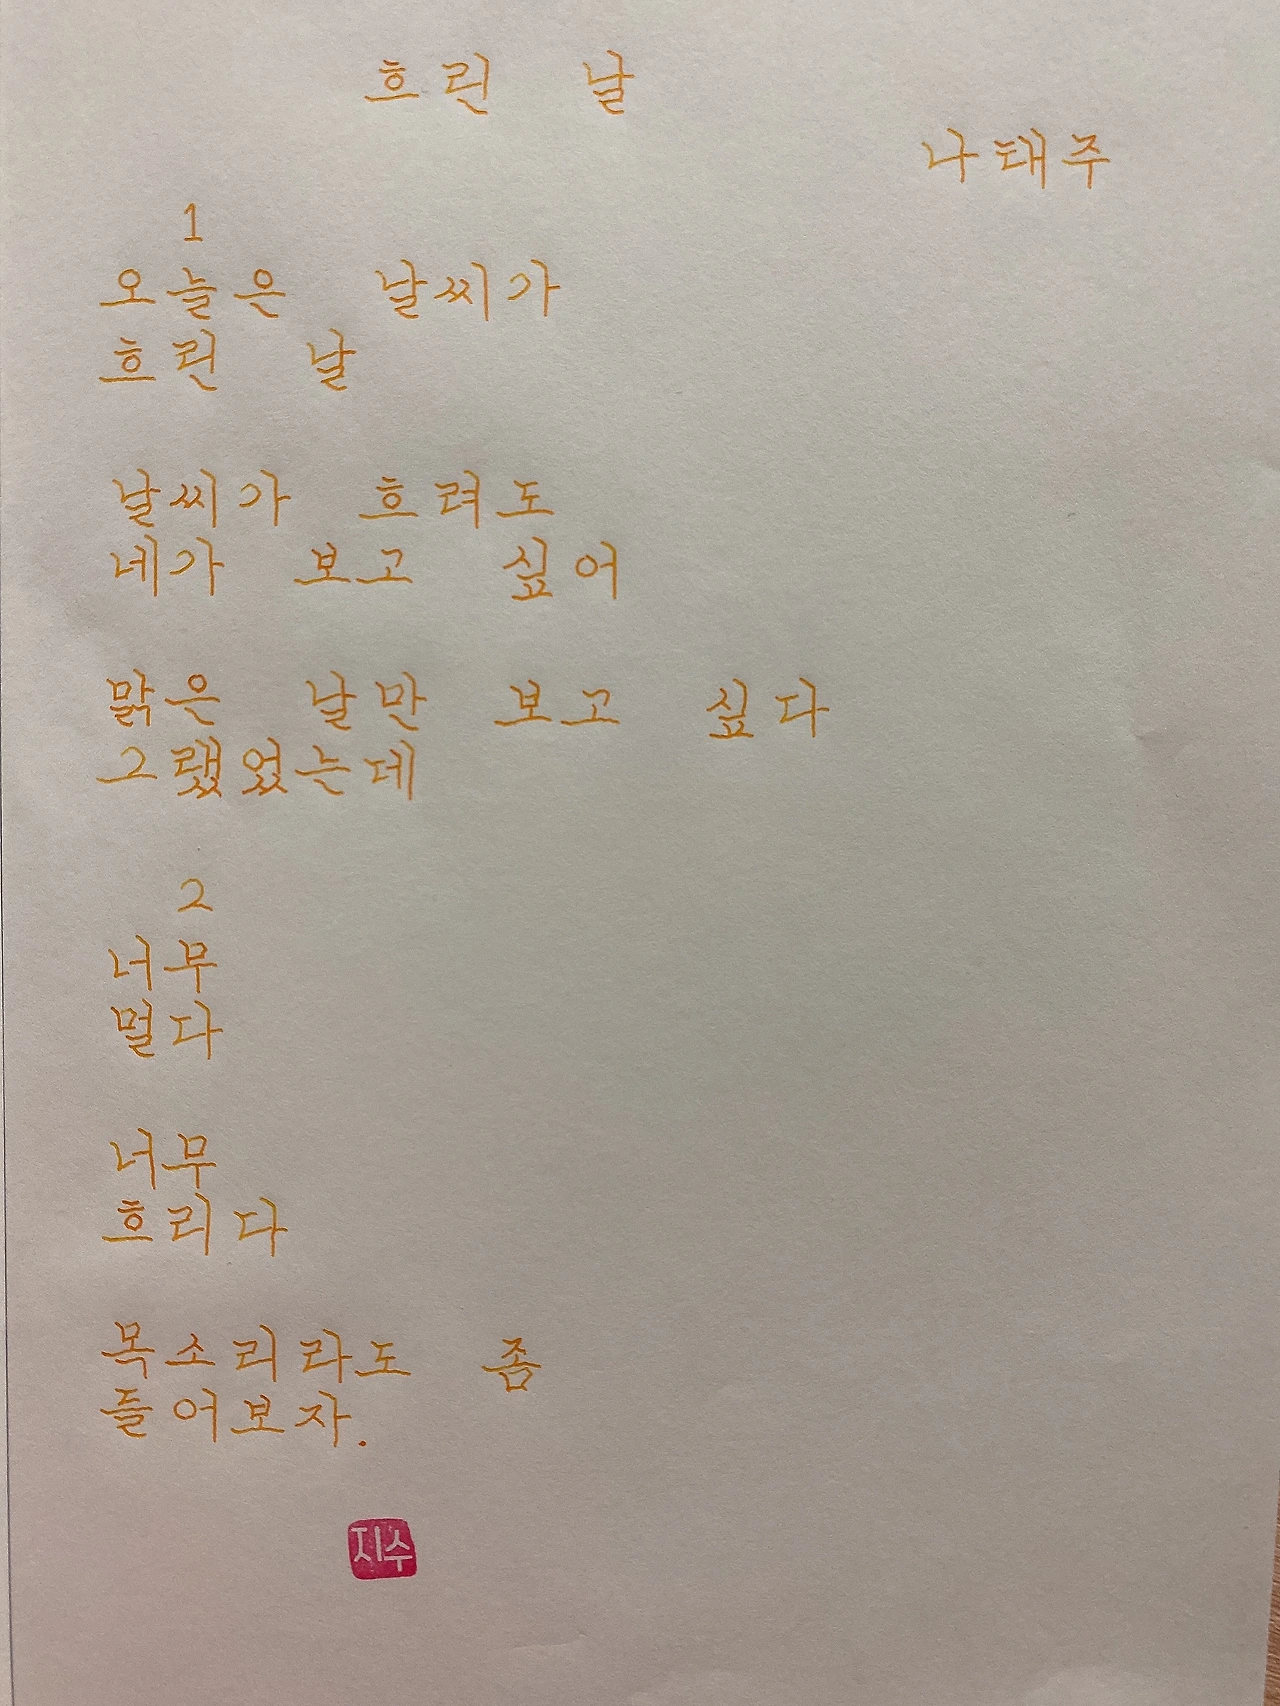 흐린 날
나태주
1
오늘은 날씨가
흐린 날
날씨가 흐려도
네가 보고 싶어
맑은 날만 보고 싶다
그랬었는데
2
너무
멀다
너무
흐리다
목소리라도 좀
들어보자.
지수